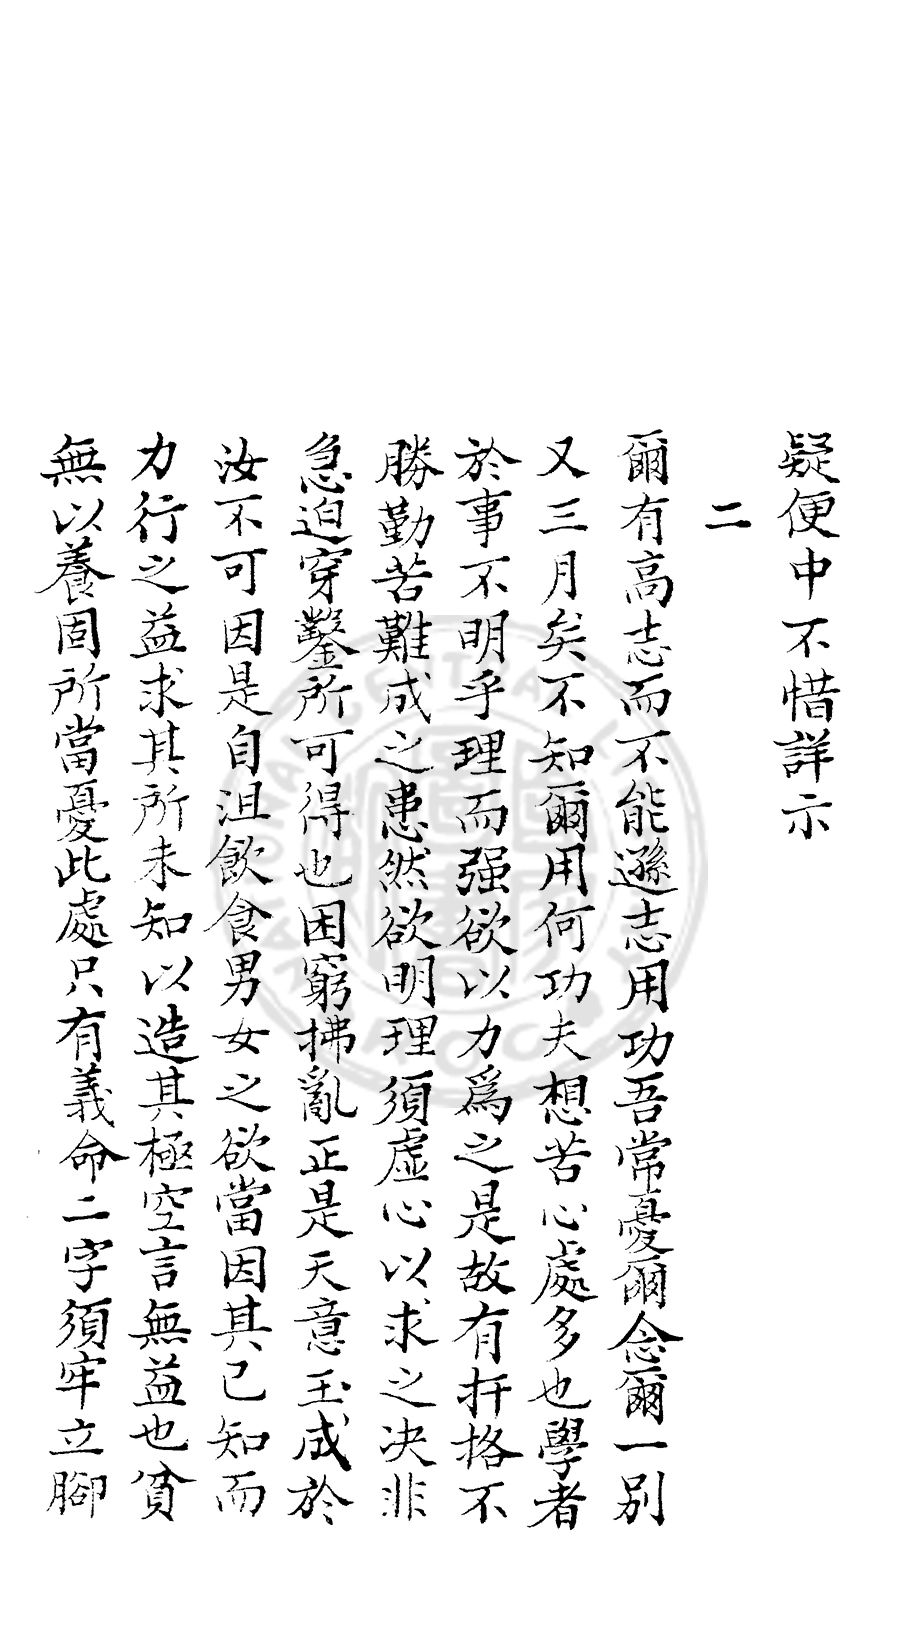 疑便中不惜詳示
二
爾有高志而不能遜志用功吾常憂爾念爾一別
又三月矣不知爾用何功夫想苦心處多也學者
於事不明乎理而强欲以力爲之是故有扞格不
勝勤苦難成之患然欲明理須虛心以求之决非
急迫穿鑿所可得也困窮拂亂正是天意玉成於
汝不可因是自沮飲食男女之欲當因其已知而
力行之益求其所未知以造其極空言無益也貧
無以養固所當憂此處只有義命二字須牢立腳